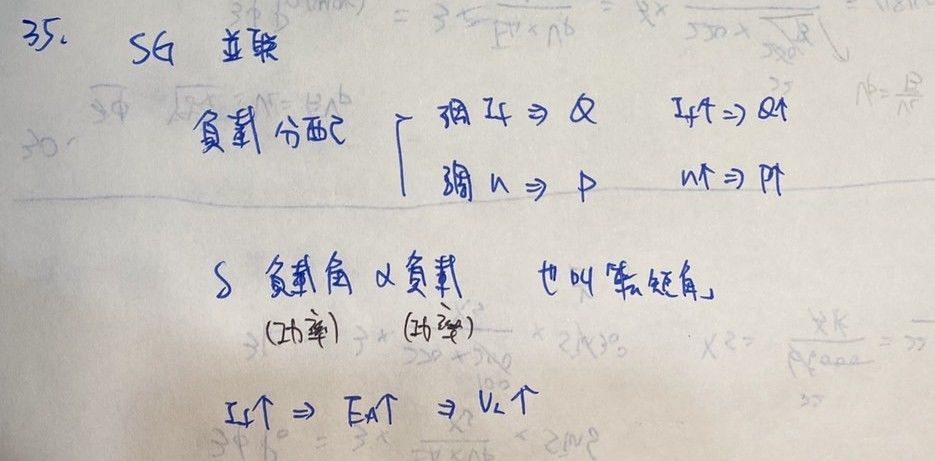 35. SG 並聯
負載分配 調 If ⇒ Q If↑ ⇒ Q↑
調 n ⇒ P n↑ ⇒ P↑
δ 負載角 α 負載 也叫「轉矩角」
(功率) (功率)
If↑ ⇒ EA↑ ⇒ VL↑